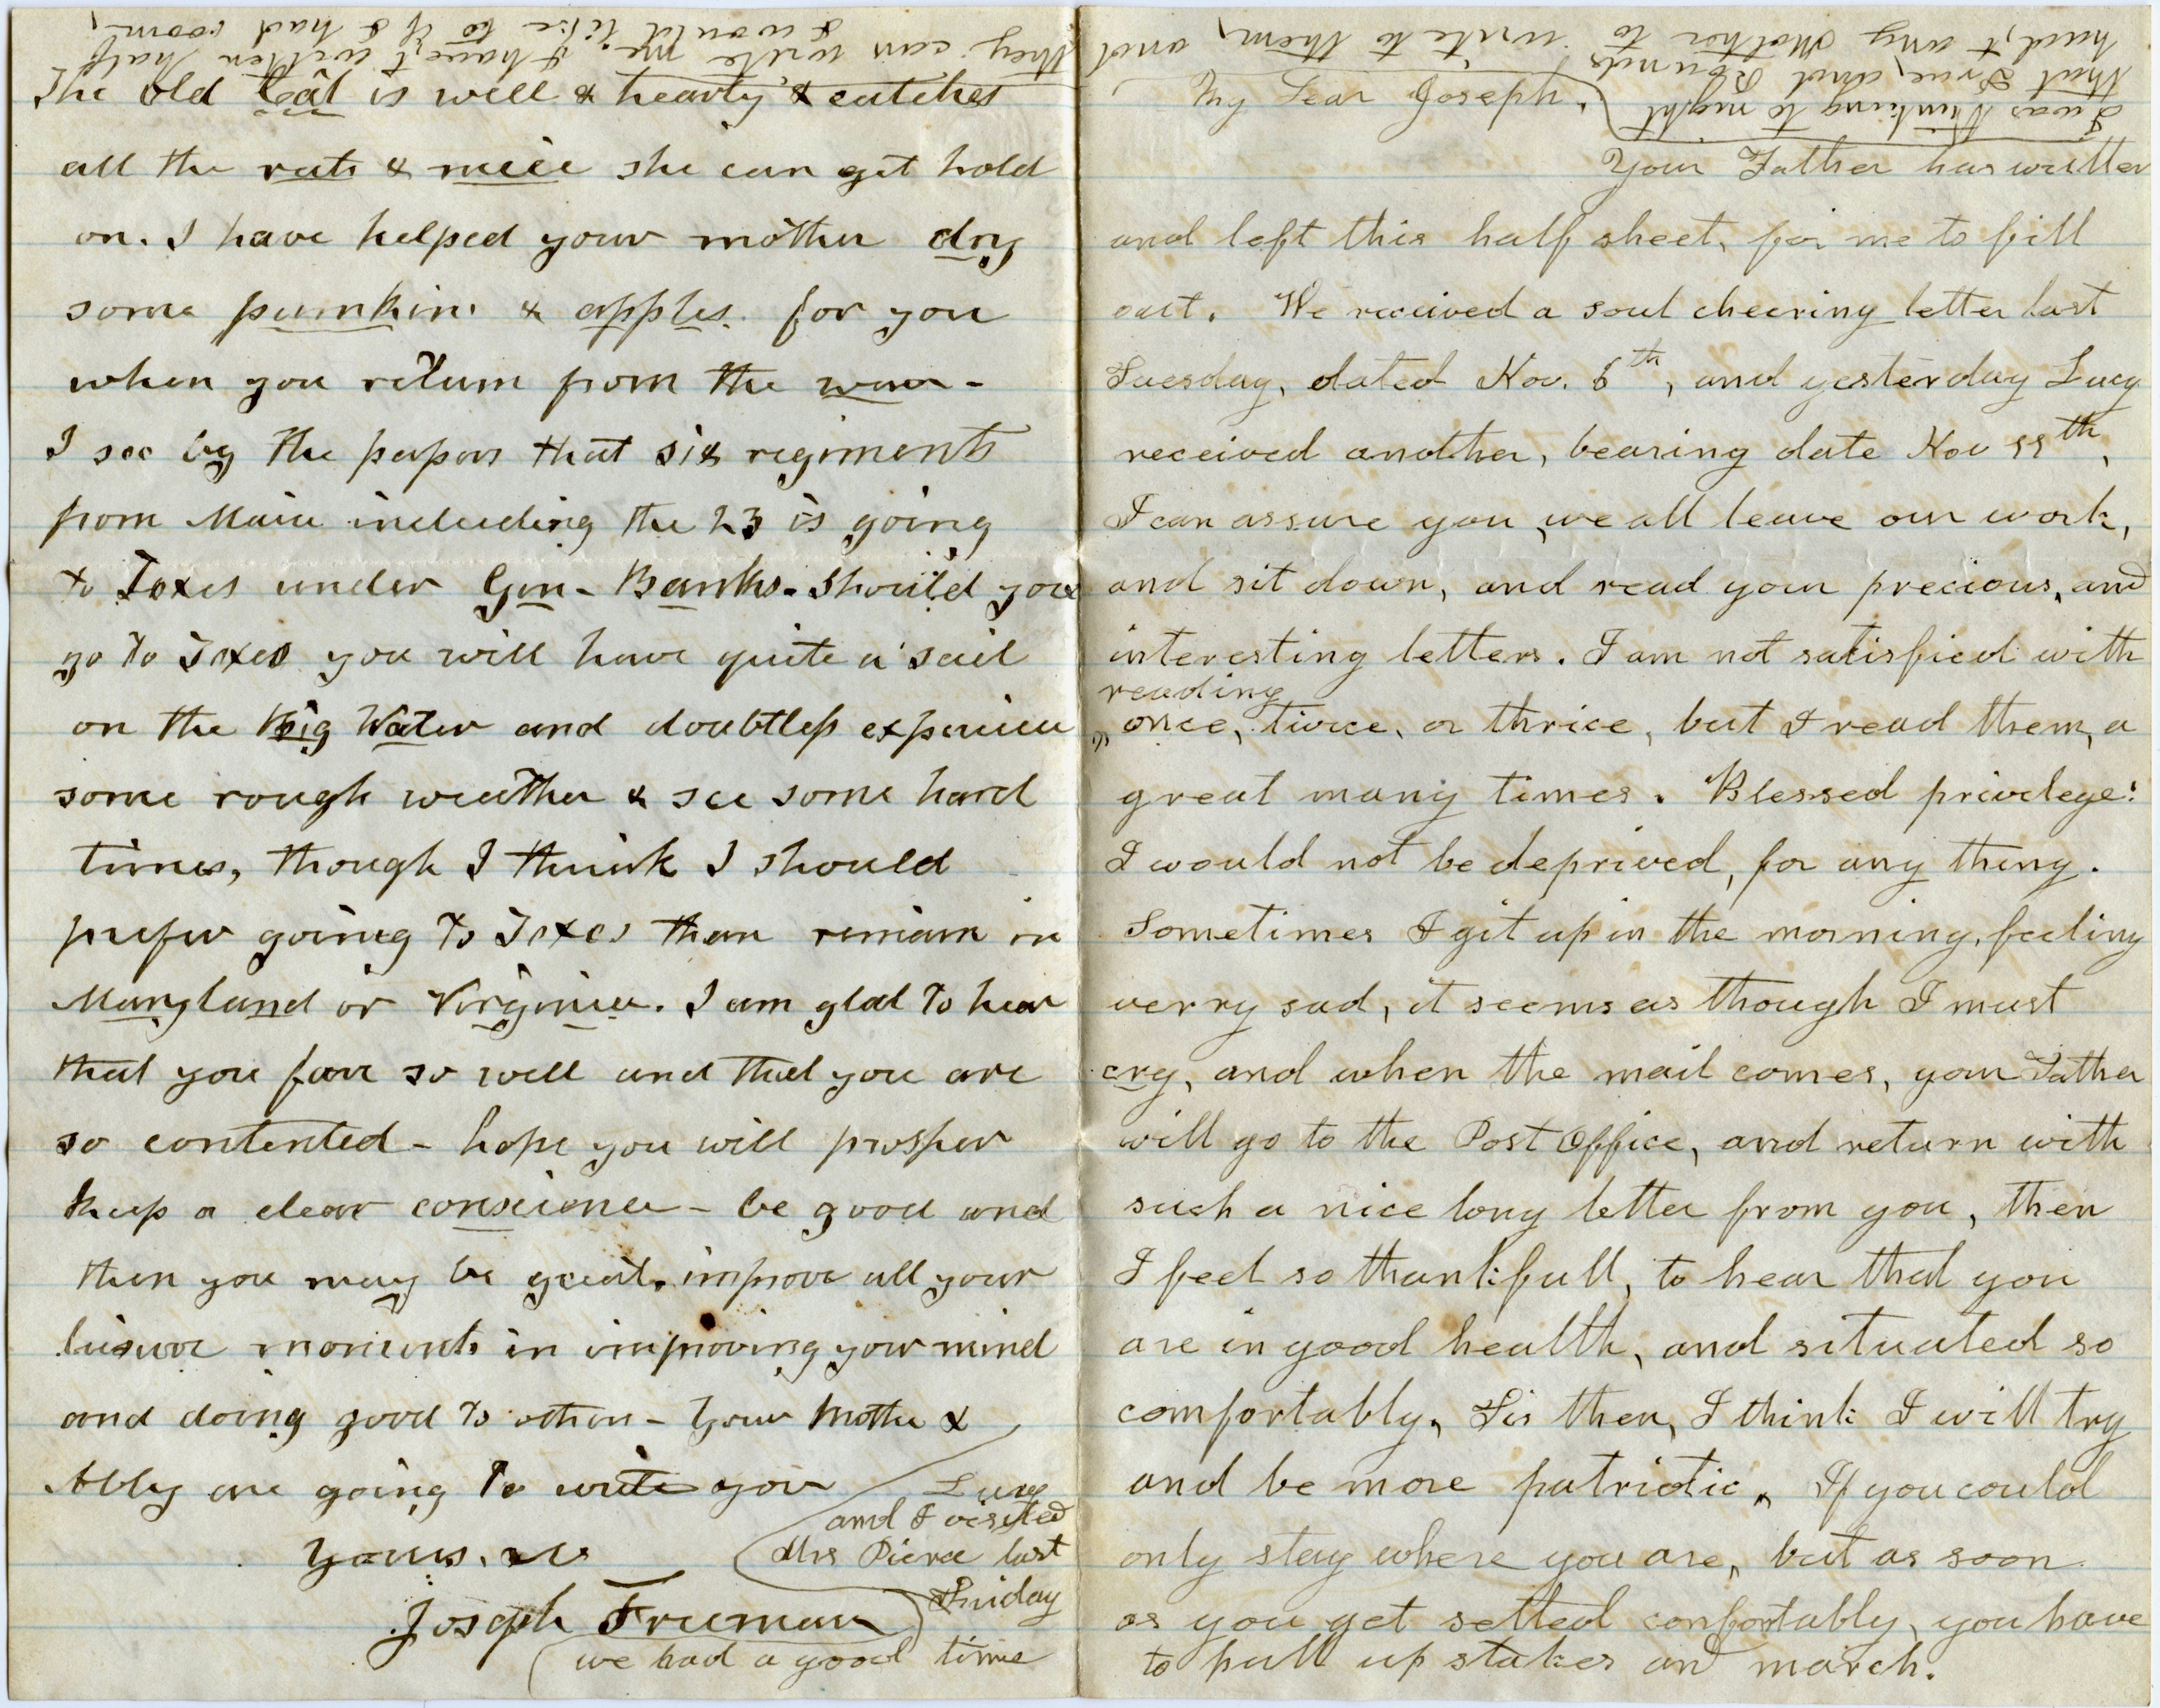 The old Cat is well & hearty, & catches
all the rats & mice she can get hold
on. I have helped your mother dry
some pumkins & apples for you
when you return from the war -
I see by the papers that six regiments
from Maine including the 23 is going
to Texes under Gen - Banks - Should you
go to Texes you will have quite a sail
on the Big Water and doubtless experience
some rough weather & see some hard
times, though I think I should
prefer going to Texes than remain in
Maryland or Virginia. I am glad to hear
that you fare so well and that you are
so contented - hope you will prosper
keep a clear conscience - be good and
then you may be great. improve all your
leisure moments in improving your mind
and doing good to others - Your Mother &
Abby are going to write you
Yours. as
Joseph Freeman
Lucy
and I visited
Mrs Pierce last
Friday
we had a good time
My Dear Joseph,
Your Father has written
and left this half sheet, for me to fill
out. We received a soul cheering letter last
Tuesday, dated Nov. 6th, and yesterday Lucy
received another, bearing date Nov 11th,
I can assure you, we all leave our work,
and sit down, and read your precious, and
interesting letters. I am not satisfied with
reading
once, twice, or thrice, but I read them, a
great many times. Blessed privelege!
I would not be deprived, for any thing.
Sometimes I git up in the morning, feeling
verry sad, it seems as though I must
cry, and when the mail comes, your Father
will go to the Post Office, and return with
such a nice long letter from you, then
I feel so thankfull, to hear that you
are in good health, and situated so
comfortably, Tis then, I think I will try
and be more patriotic, If you could
only stay where you are, but as soon
as you get setted comfortably, you have
to pull up stakes and march.
I was thinking to night
that True, and Rounds
had,t any Mother to write to them, and
they can write me. I have,t written half
I would like to if I had room,